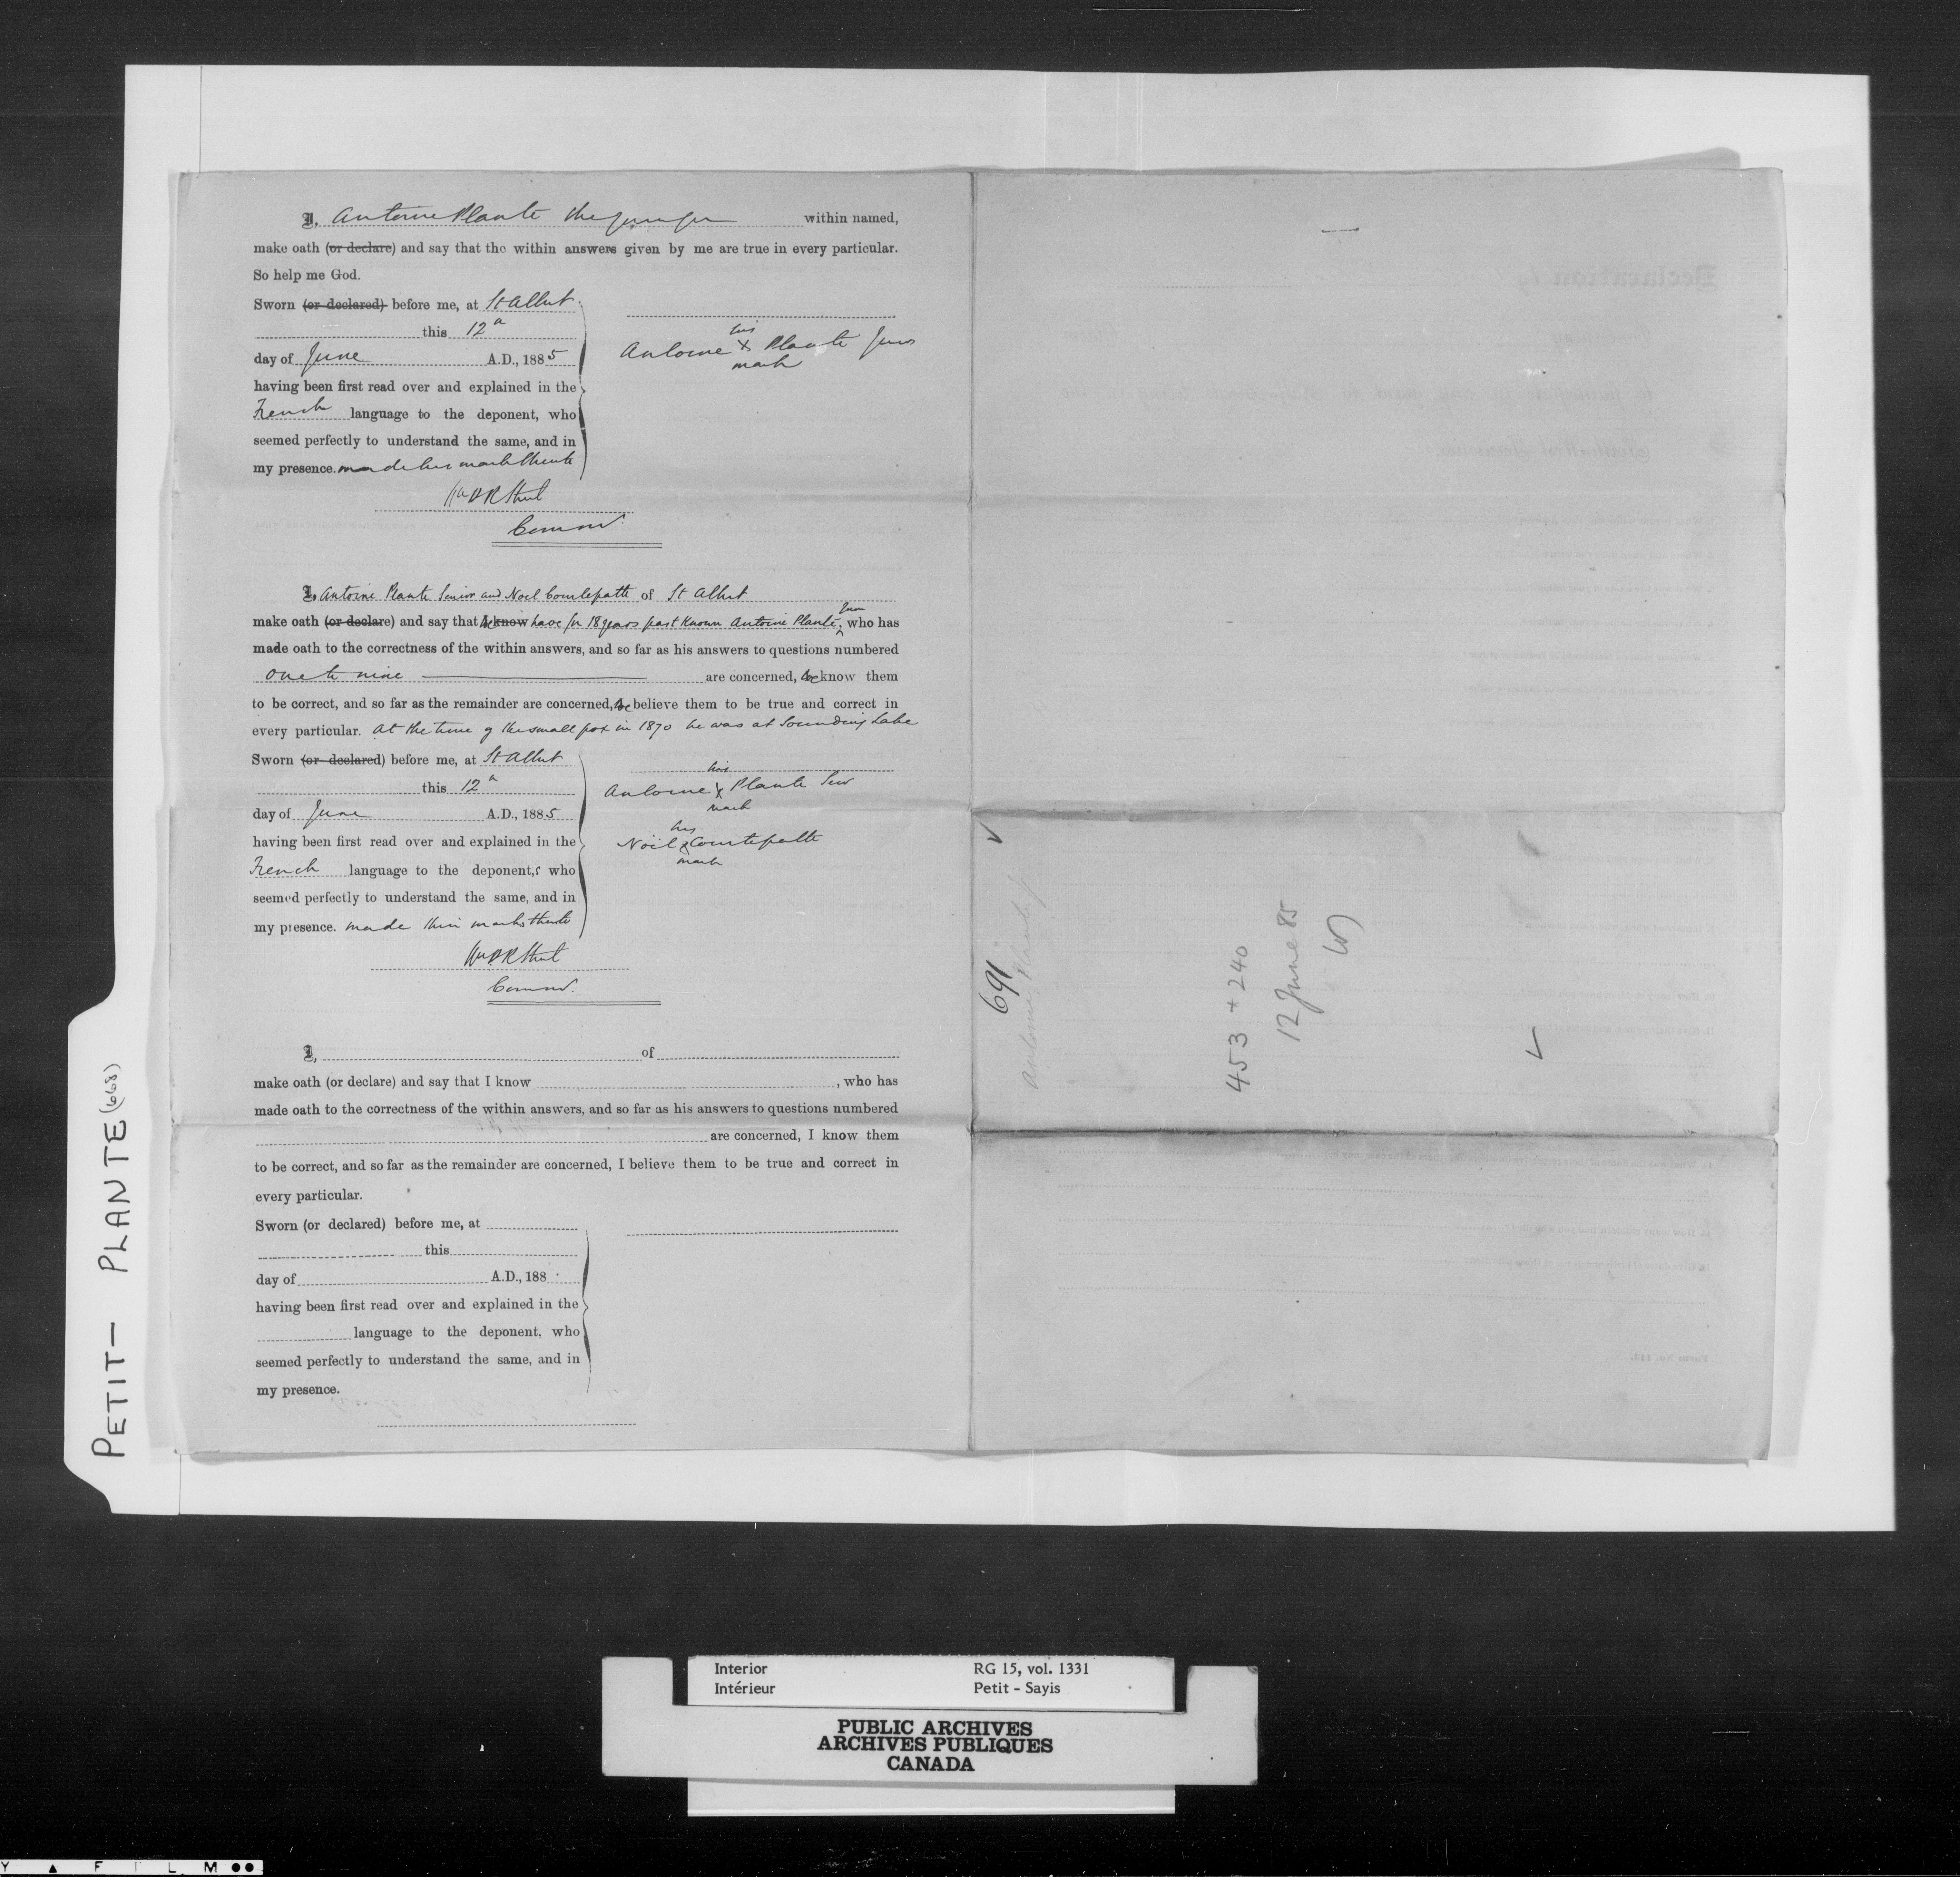 I, Antoine Plante the younger within named,
make oath (or declare) and say that the within answers given by me are true in every particular.
So help me God.
Sworn (or declared) before me, at St Albert
this 12th
day of June A.D., 1885
having been first read over and explained in the
French language to the deponent, who
seemed perfectly to understand the same, and in
my presence. made his mark thereto
his
Antoine X Plante Junr
mark
I, Antoine Plante Senior and Noel Courtepatte of St Albert
make oath (or declare) and say that we know have for 18 years past known Antoine Plante, Junr who has
made oath to the correctness of the within answers, and so far as his answers to questions numbered
one to nine are concerned, we know them
to be correct, and so far as the remainder are concerned, we believe them to be true and correct in
every particular. At the time of the small pox in 1870 he was at Sounding Lake
Sworn (or declared) before me, at St Albert
this 12th
day of June A.D., 1885
having been first read over and explained in the
French language to the deponent,s who
seemed perfectly to understand the same, and in
my presence. made their marks thereto
his
Antoine X Plante Senr
mark
his
Noël X Courtepatte
mark
I, of
make oath (or declare) and say that I know , who has
made oath to the correctness of the within answers, and so far as his answers to questions numbered
are concerned, I know them
to be correct, and so far as the remainder are concerned, I believe them to be true and correct in
every particular.
Sworn (or declared) before me, at
this
day of A.D., 188
having been first read over and explained in the
language to the deponent, who
seemed perfectly to understand the same, and in
my presence.
691
Antoine Plante Jr
453 + 240
12 June 85
PETIT - PLANTE (668)
Interior RG 15, vol. 1331
Intérieur Petit - Sayis
PUBLIC ARCHIVES
ARCHIVES PUBLIQUES
CANADA